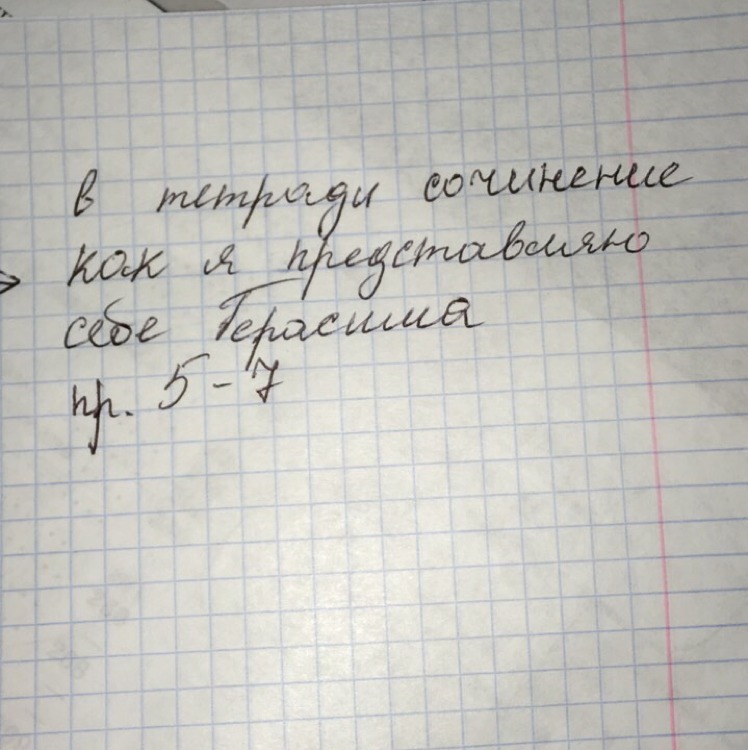 в тетради сочинение
как я представляю
себе Герасима
пр. 5-7